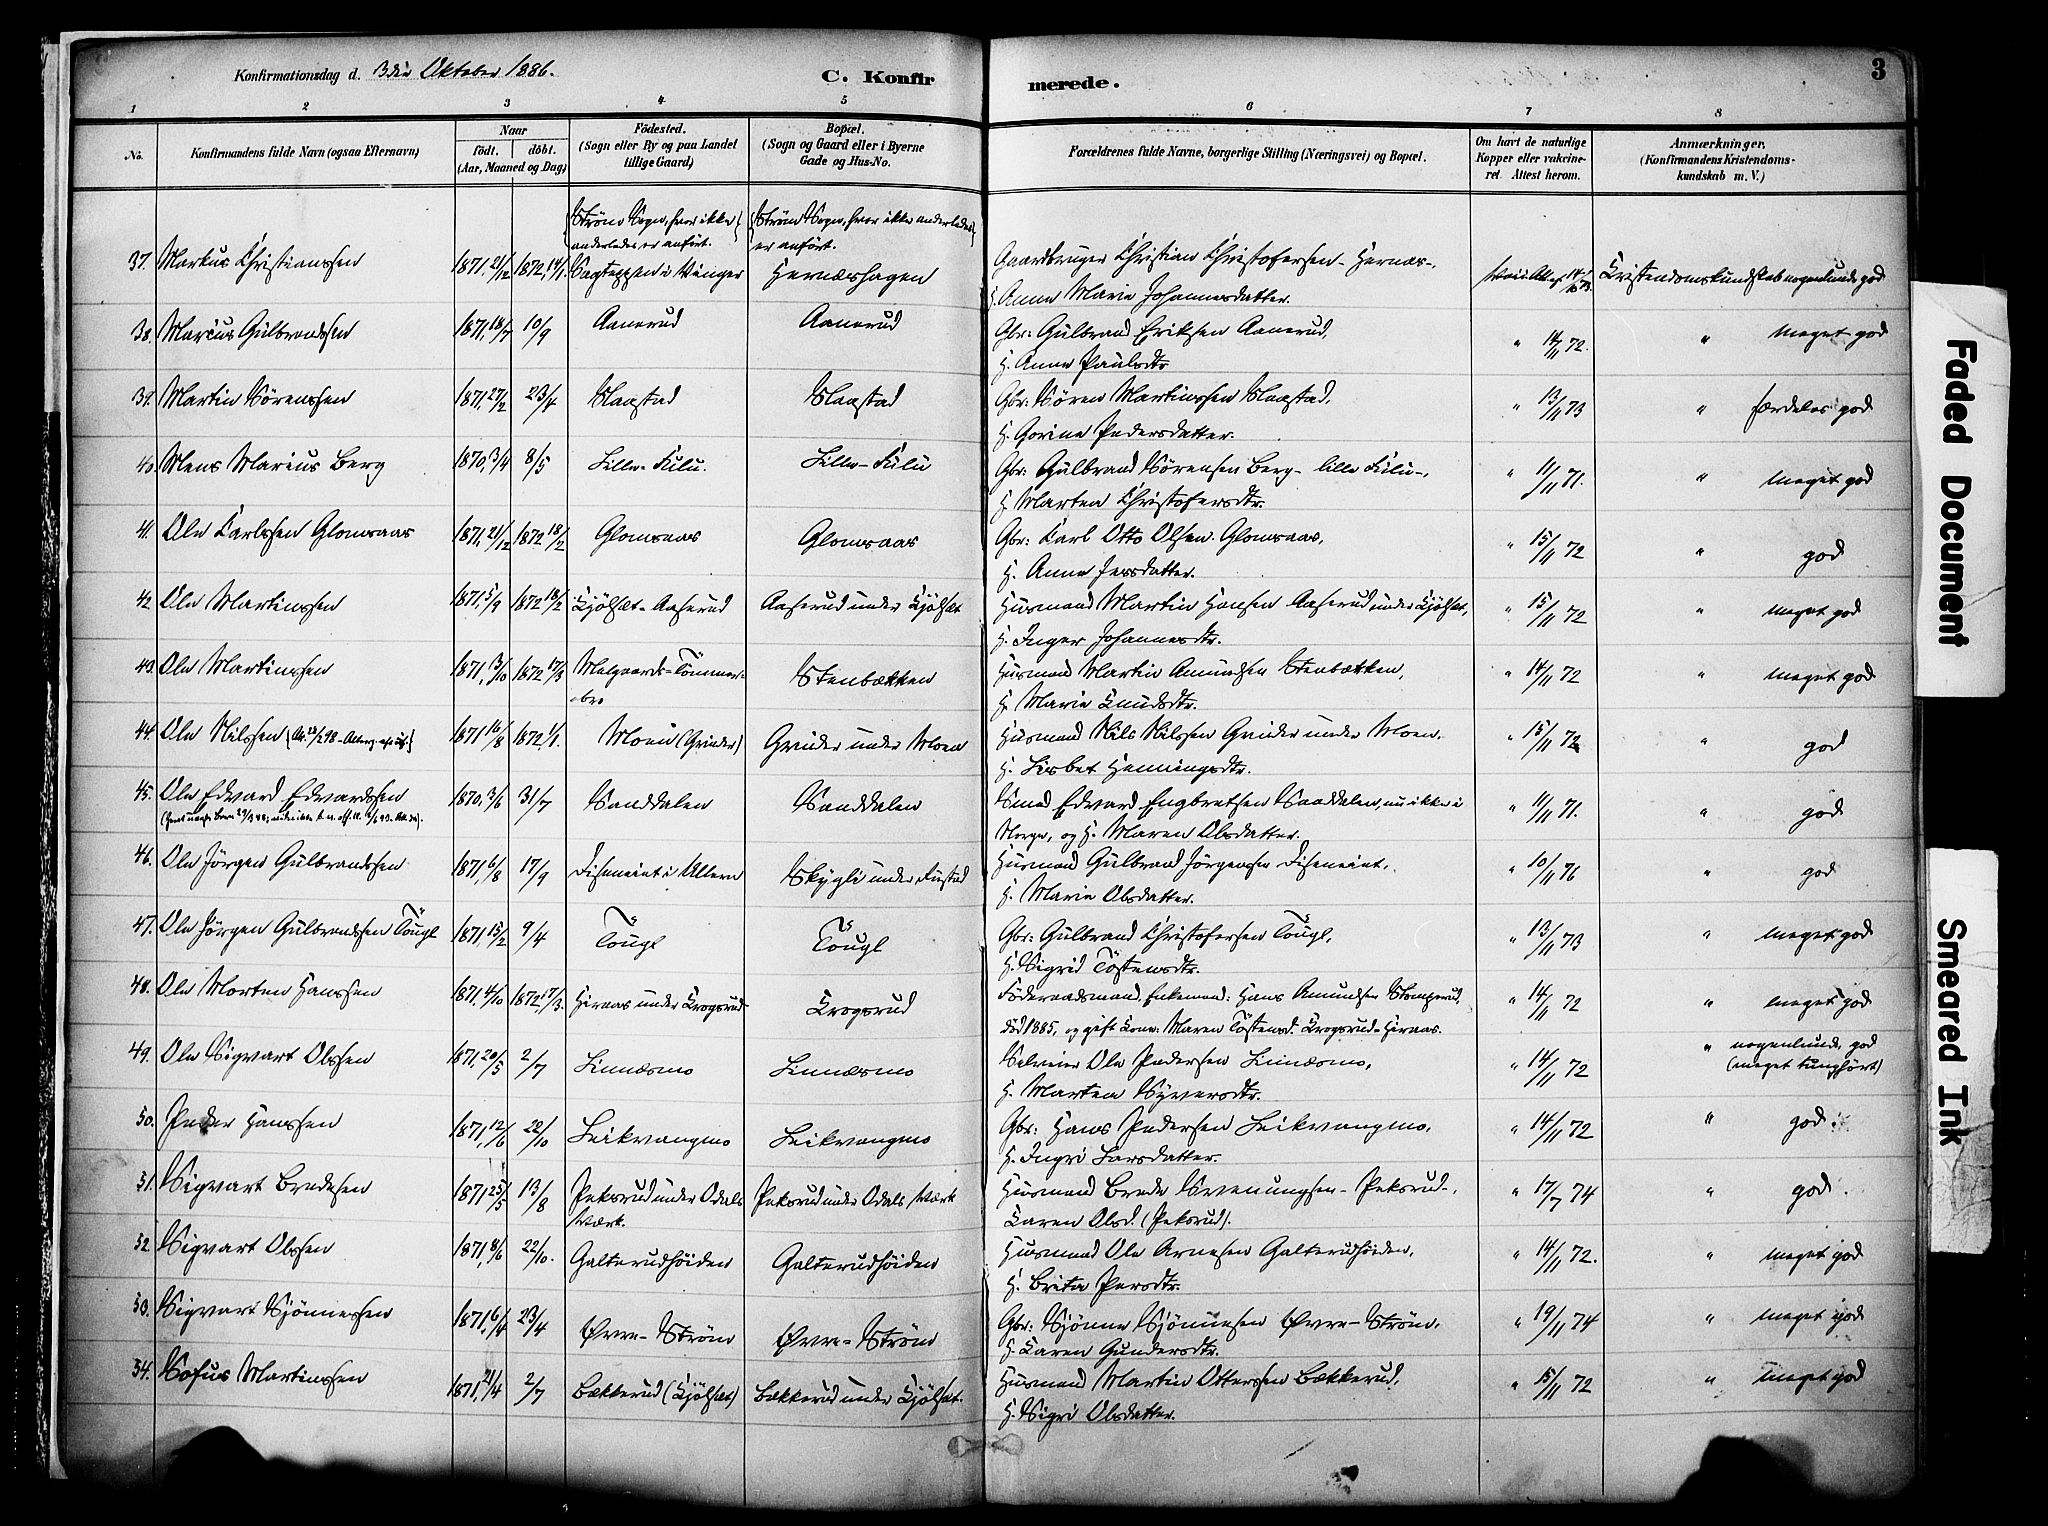 Konfirmationsdag d. 3die Oktober 1886. C. Konfirmerede. 3
1 2 3 4 5 6 7 8
No. Konfirmandens fulde Navn (ogsaa Efternavn) Naar födt. döbt. (Aar, Maaned og Dag) Födested. (Sogn eller By og paa Landet tillige Gaard) Bopæl. (Sogn og Gaard eller i Byerne Gade og Hus-No. Forældrenes fulde Navne, borgerlige Stilling (Næringsvei) og Bopæl. Om havt de naturlige Kopper eller vakcineret. Attest herom. Anmærkninger. (Konfirmandens Kristendomskundskab m. V.)
{Strøm Sogn, hvor ikke anderledes er anført.} {Strøm Sogn, hvor ikke anderledes er anført.}
37. Markus Christianssen 1871, 21/12 1872, 14/1. Sagteppen i Vinger Hernæshagen Gaardbruger Christian Christofersen Hernæs,
H. Anne Marie Johannesdatter. Kristendomskundskab nogenlunde god
38. Marius Gulbrandsen 1871, 18/7 10/9 Aanerud Aanerud Gbr: Gulbrand Eriksen Aanerud,
H. Anne Paulsdtr " 14/11 72. " meget god
39. Martin Sørenssen 1871, 27/2 23/4 Slaastad Slaastad Gbr: Søren Martinssen Slaastad,
H. Gorine Pedersdatter. " 13/11 73 " særdeles god
40. Mens Marius Berg 1870, 3/4 8/5 Lille-Fulu. Lille-Fulu Gbr: Gulbrand Sørensen Berg - lille Fulu -,
H. Marten Christofersdtr. " 11/11 71. " meget god
41. Ole Karlssen Glomsaas 1871, 21/12 1872 18/2 Glomsaas Glomsaas Gbr: Karl Otto Olsen Glomsaas,
H. Anne Jensdatter. " 15/11 72 " god
42 Ole Martinssen 1871, 5/9 1872 18/2 Kjølset-Aaserud Aaserud under Kjølset Husmand Martin Hansen Aaserud under Kjølset,
H. Inger Johannesdtr. " 15/11 72 " meget god
43. Ole Martinssen 1871, 13/10 1872 17/3 Malgaards-Tømmerbro Stenbækken Husmand Martin Amundsen Stenbækken,
H. Marie Knudsdtr. " 14/11 72 " meget god
44. Ole Nilssen 1871 16/8 1872 1/1. Moen (Grinder) Grinder under Moen Husmand Nils Nilssen Grinder under Moen.
H. Lisbet Henningsdtr. " 15/11 72 " god
45. Ole Edvard Edvardssen 1870, 3/6 31/7 Sanddalen Sanddalen Smed Edvard Engbretsen Sanddalen, nu ikke i
Norge, og H. Maren Olsdatter. " 11/11 71. " god
46. Ole Jørgen Gulbrandssen 1871, 6/8 17/9 Diseneiet i Ullern Skygli under Fiestad Husmand Gulbrand Jørgenssen Diseneiet,
H. Marie Olsdatter. " 10/11 76 " god
47. Ole Jørgen Gulbrandsen Tøugl 1871, 15/2 9/4 Tøugl Tøugl Gbr: Gulbrand Christofersen Tøugl,
H. Sigrid Tøstensdtr. " 13/11 73 " meget god
48. Ole Morten Hanssen 1871, 4/10 1872, 17/3. Hiraas under Krogsrud Krogsrud Føderaadsmand, Enkemand: Hans Amundsen Stomperud,
død 1885, og gift Kone: Maren Tøstensd. Krogsrud-Hiraas. " 14/11 72 " meget god
49. Ole Sigvart Olssen 1871, 20/5 2/7 Linnæsmo Linnæsmo Selveier Ole Pedersen Linnæsmo,
H. Marten Syversdtr. " 14/11 72 " nogenlunde god
(meget tunghørt)
50. Peder Hanssen 1871, 12/6 22/10 Leikvangmo Leikvangmo Gbr: Hans Pedersen Leikvangmo,
H. Ingri Larsdatter. " 14/11 72 " god.
51. Sigvart Bredesen 1871 25/5 13/8 Peksrud under Odals Værk. Peksrud under Odals Værk Husmand Brede Svenungsen - Peksrud -,
Karen Olsd. (Peksrud). " 17/7 74 " god.
52. Sigvart Olssen 1871, 8/6 22/10. Galterudhøiden Galterudhøiden Husmand Ole Arnesen Galterudhøiden,
H. Brita Persdtr. " 14/11 72. " meget god
53. Sigvart Sjønnessen 1871, 6/4 23/4 Øvre-Strøm Øvre-Strøm Gbr: Sjønne Sjønnesen Øvre-Strøm,
H. Karen Gundersdtr. " 19/11 74 " meget god
54. Sofus Martinssen 1871, 21/4 2/7 Bækkerud (Kjølset) Bækkerud under Kjølset. Husmand Martin Otterssen Bækkerud,
H. Sigri Olsdatter. " 15/11 72 " meget god
Faded Document
Smeared Ink